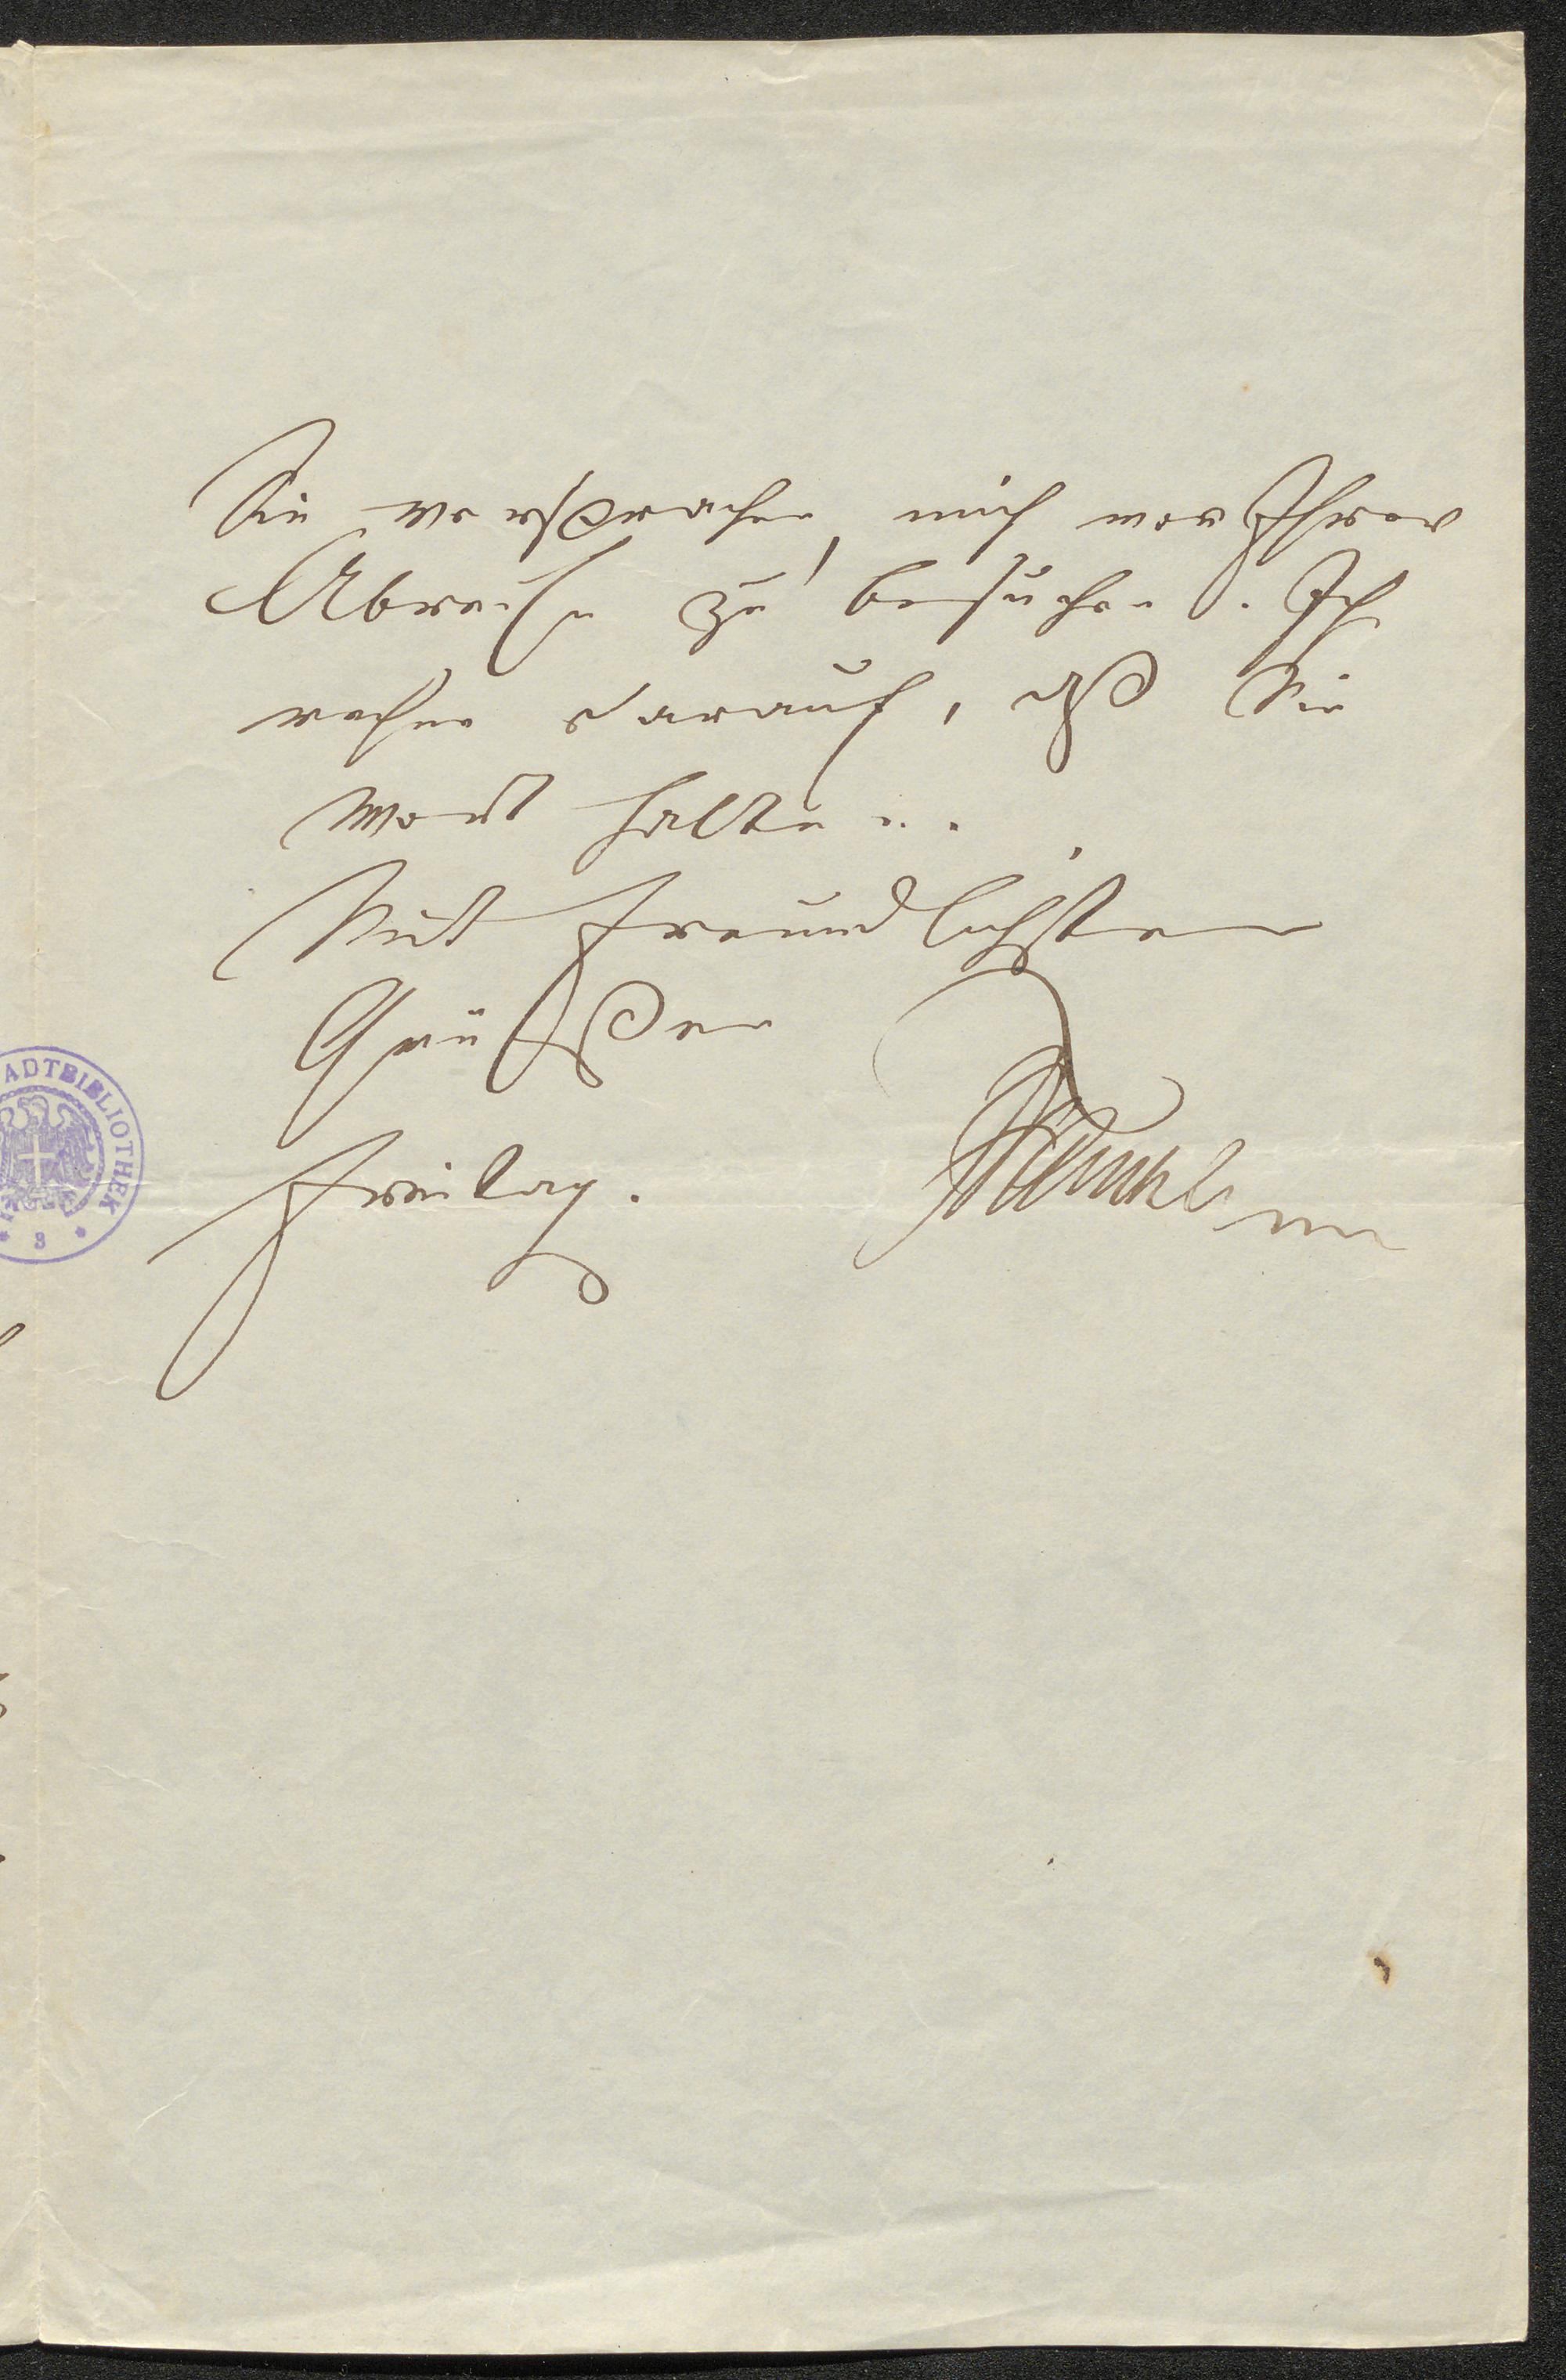 Sie versprachen, mich vor Ihrer
Abreise zu besuchen. Ich
rechne darauf, daß Sie
Wort halten.
Mit freundlichsten
Grüßen
Freitag.
ADTBIBLIOTHEK
* 3 *